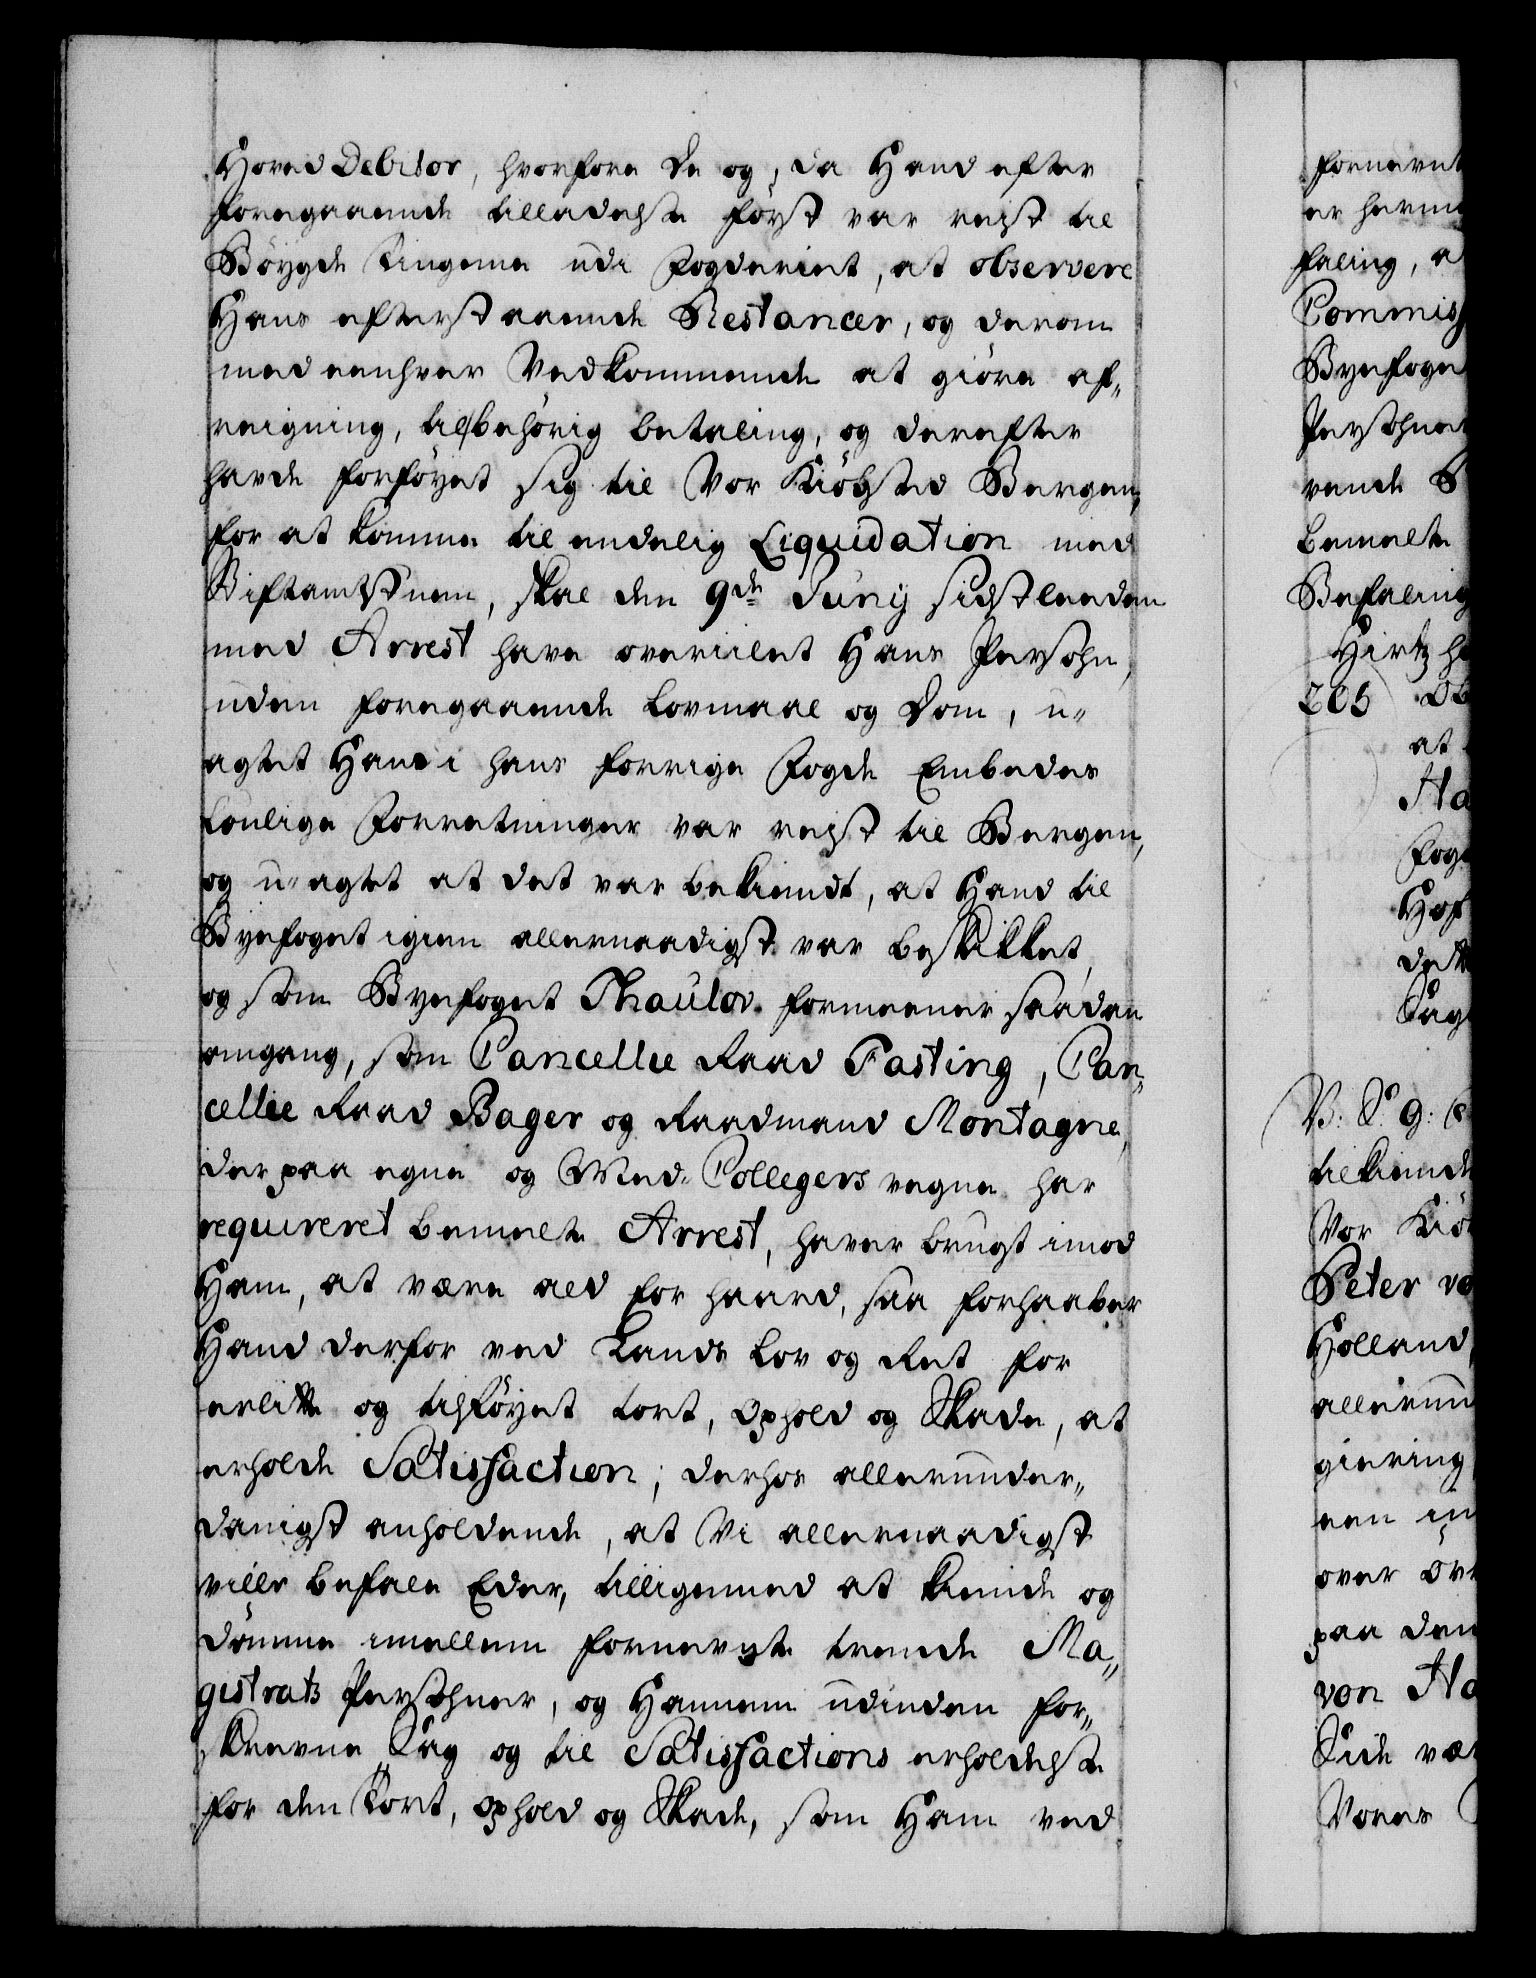 Hoved Debitor, hvorfore De og, da Hand efter
foregaaende tilladelse først var reist til
Bøygde Tingene udi Fogderiet, at observere
Hans efterstaaende Restancer, og derom
med eenhver Vedkommende at giøre af„
reigning, til behörig betaling, og derefter
havde forföyet sig til Vor Kiöbsted Bergen,
for at komme til endelig Liquidation med
Stiftamtstuen, skal den 9de Junij sidstleeden
med Arrest have overiilet Hans Persohn,
uden foregaaende Lovmaal og Dom, u„
agtet Hand i hans forrige Fogde Embedes
Lovlige Forretninger var reist til Bergen,
og u„agtet at det var bekiendt, at Hand til
Byefoget igien allernaadigst var beskikket,
og som Byefoget Thaulov formeener saadan
omgang, som Cancellie Raad Fasting, Can„
cellie Raad Bager og Raadmand Montagne,
der paa egne og Med-Collegers vegne har
requireret bemelte Arrest, haver brugt imod
Ham, at være ald for haard, saa forhaaber
Hand derfor ved Lands Lov og Ret for
erlidte og tilföyet tort, ophold og Skade, at
erholde Satisfaction; derhos allerunder„
danigst anholdende, at Vi allernaadigst
ville befale Eder, tilligemed at kiende og
dömme imellem fornevnte trende Ma„
gistrats Persohner, og Hannem udinden for„
skrevne Sag og til Satisfactions erholdelse
for den Tort, ophold og Skade, som Ham ved
fornevnt
er herme
faling, a
Commiss
Byefoged
Persohner
vende S
bemelte
Befaling
Hirtz
205
at
Ha
Fog
Hof
Sag
tilkiende
Vor Kiö
Peter
Holland,
allerund
giering
een in
over
paa den
von Ha
Side vær
Vores